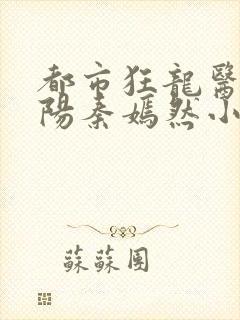 都市狂龍醫
陽秦嫣然小
蘇蘇團